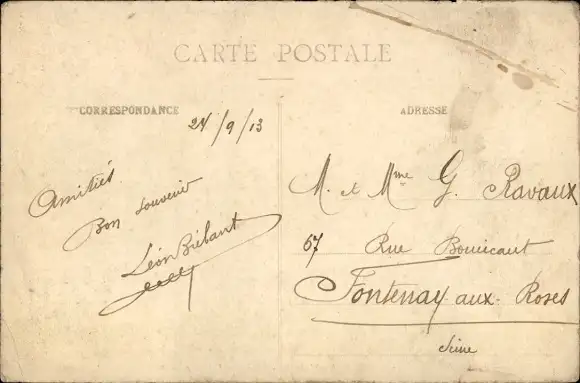 CARTE POSTALE
CORRESPONDANCE
24/9/13
Amitiés
Bon souvenir
Léon Biebant
ADRESSE
M. et Mme G. Ravaux
67 Rue Boucicaut
Fontenay aux Roses
Seine